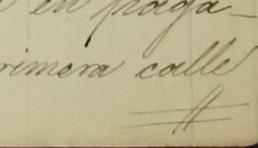 en paga-
rimera calle